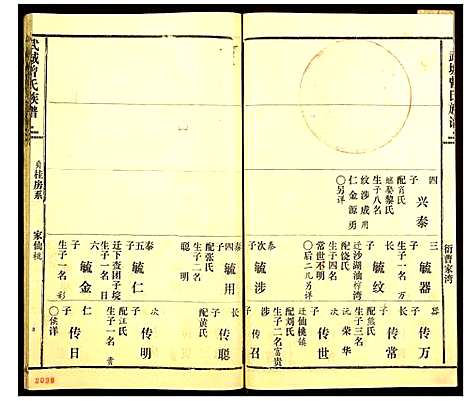 武城曾氏族谱
衍曹家湾
四子 兴泰
配肖氏
继娶黎氏
生子八名
纹涉成用
仁金源勇
〇另详
三子 毓器
生子一名 万
长子 毓纹
迁沙湖油榨湾
配饶氏
生子四名
常世不明
〇后二儿另详
次子 毓涉
泰
四子 毓用
配张氏
生子二名
聪 明
泰
五子 毓仁
迁下查团子垸
生子一名 日
六子 毓金
生子一名 彩
器子 传万
长子 传常
配熊氏
生子三名
沅 荣 华
次子 传世
迁仙桃镇
配刘氏
生子二名 富贵
涉子 传召
长子 传聪
配黄氏
次子 传明
配汪氏
生子一名 贵
仁子 传日
〇侯详
武城曾氏族谱
贞桂房系
家仙桃
2038